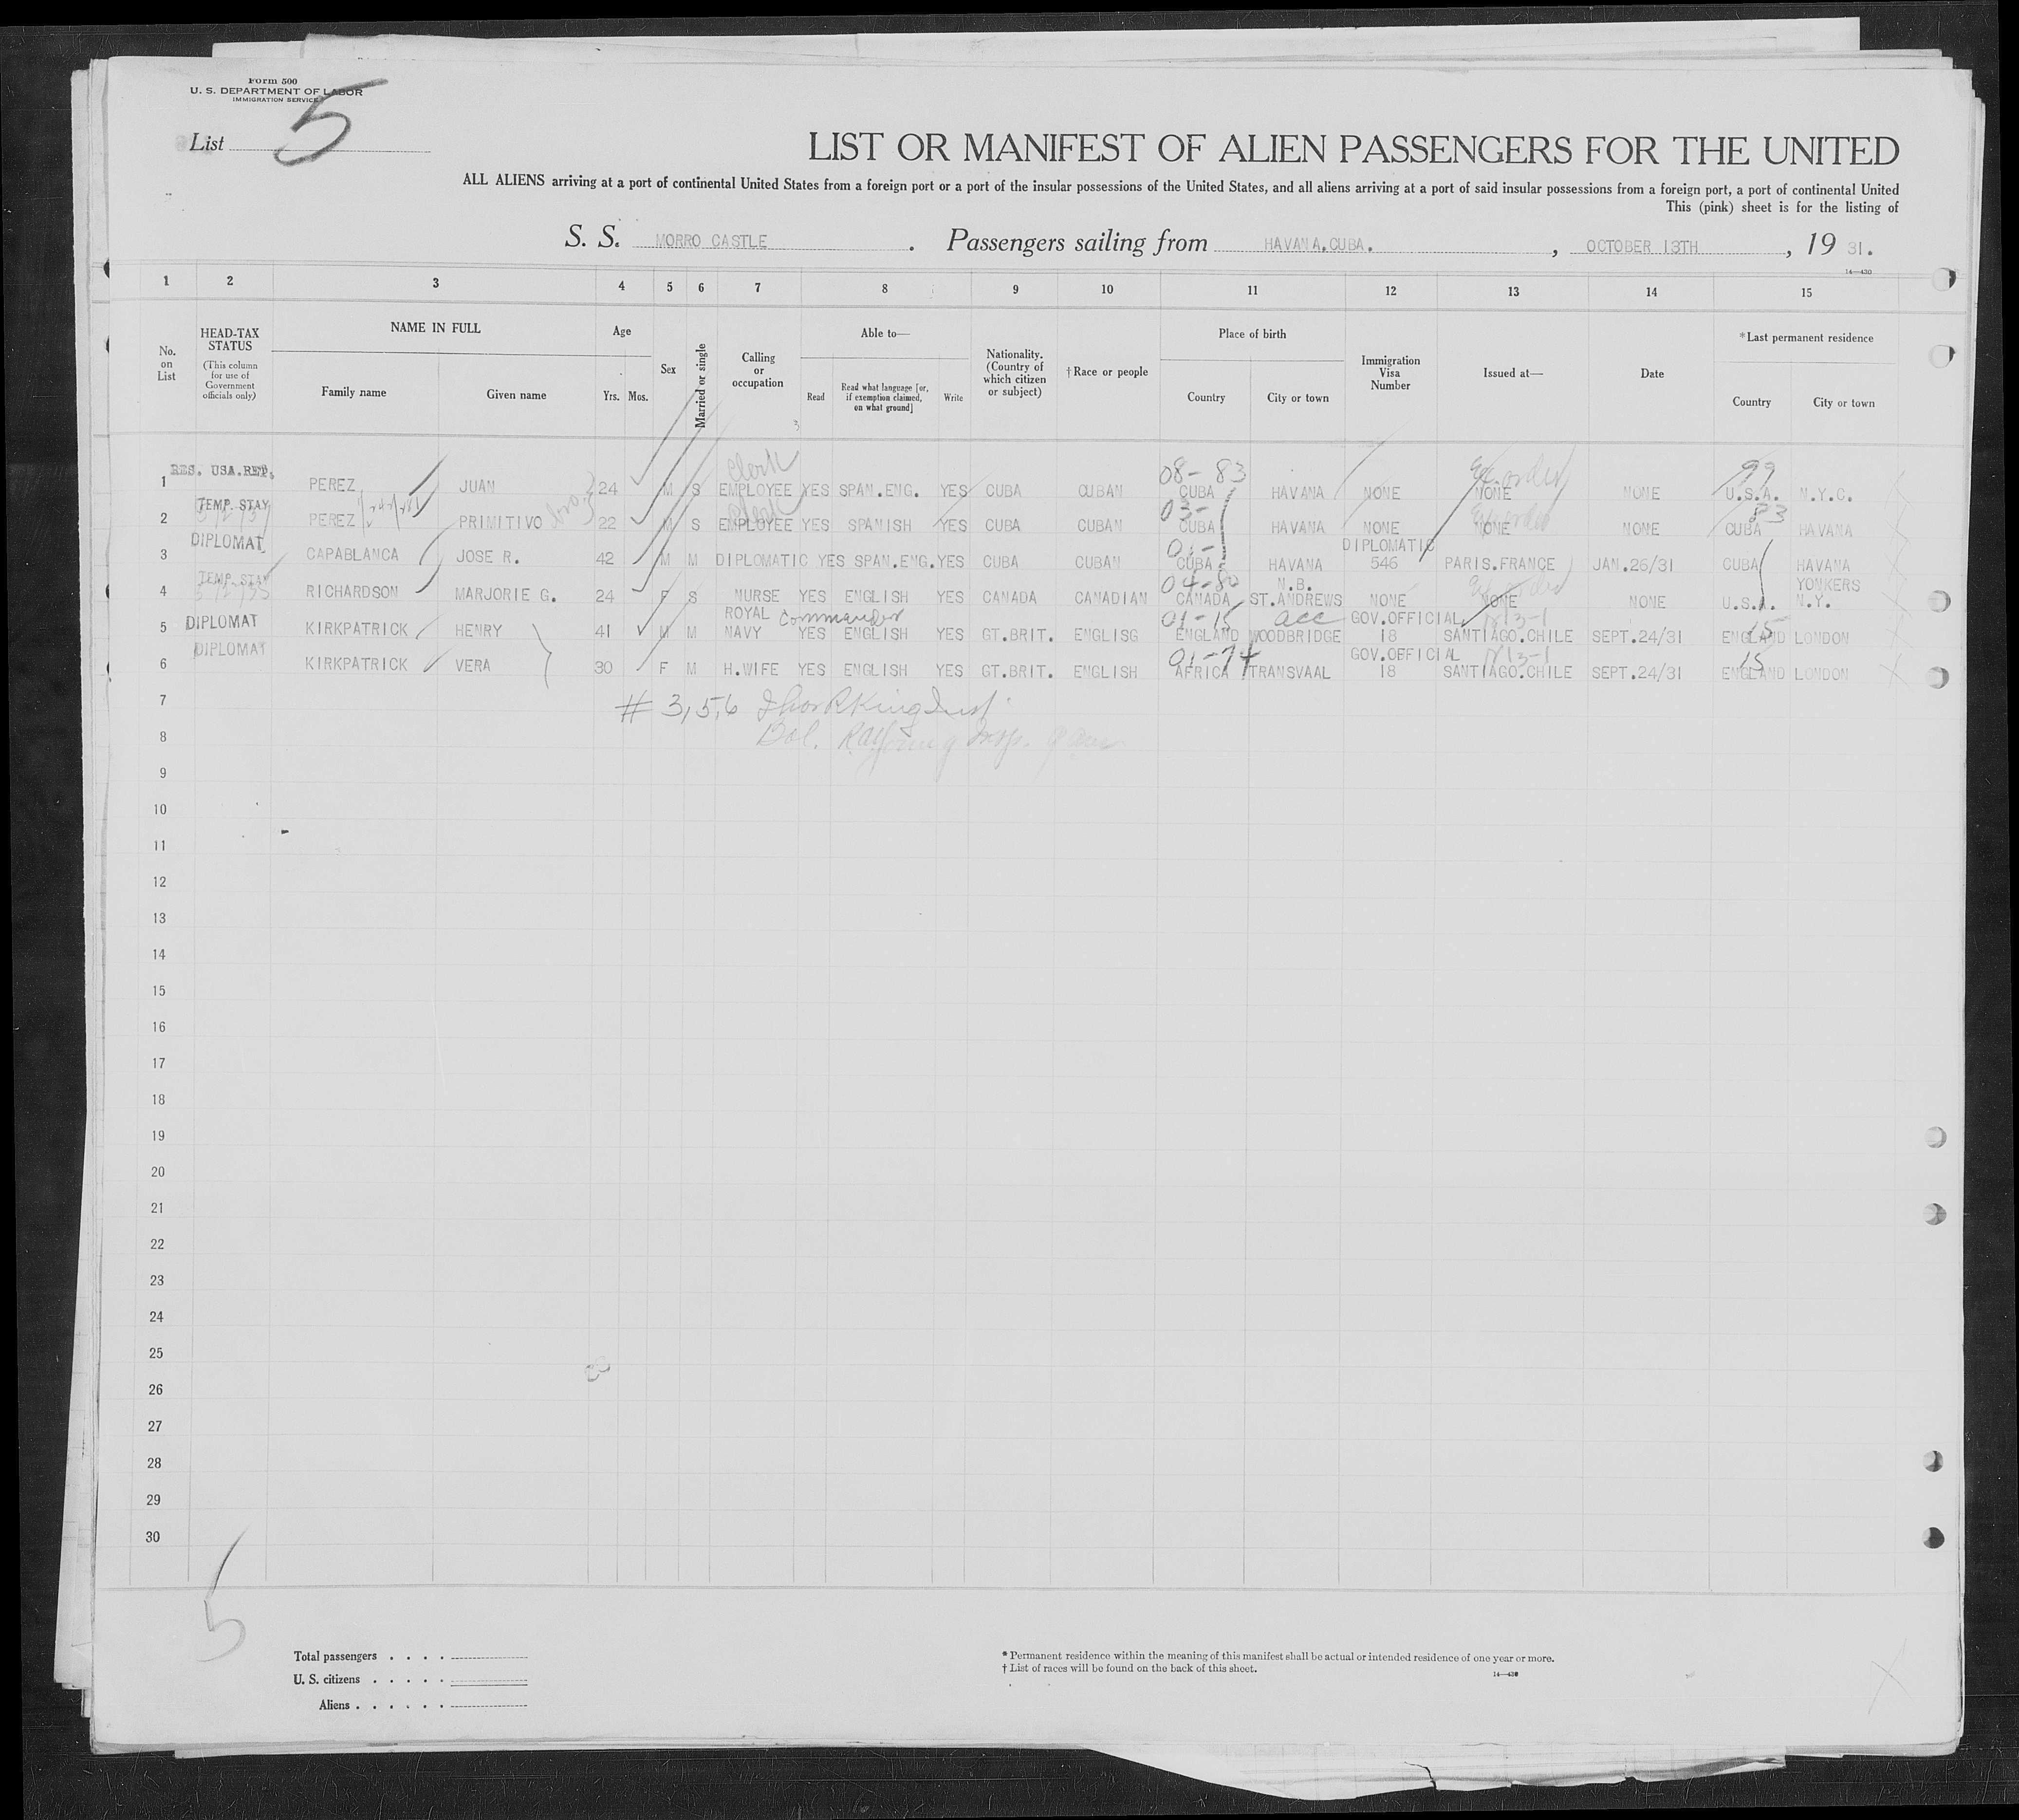 Form 500
U. S. DEPARTMENT OF LABOR
IMMIGRATION SERVICE
List 5
LIST OR MANIFEST OF ALIEN PASSENGERS FOR THE UNITED
ALL ALIENS arriving at a port of continental United States from a foreign port or a port of the insular possessions of the United States, and all aliens arriving at a port of said insular possessions from a foreign port, a port of continental United
This (pink) sheet is for the listing of
S. S. MORRO CASTLE . Passengers sailing from HAVANA.CUBA. , OCTOBER 13TH , 19 31.
14—430
1 2 3 4 5 6 7 8 9 10 11 12 13 14 15
No. on List
HEAD-TAX STATUS
(This column for use of Government officials only)
NAME IN FULL
Family name
Given name
Age
Yrs. Mos.
Sex
Married or single
Calling or occupation
Able to—
Read
Read what language [or, if exemption claimed, on what ground]
Write
Nationality. (Country of which citizen or subject)
†Race or people
Place of birth
Country
City or town
Immigration Visa Number
Issued at—
Date
*Last permanent residence
Country
City or town
Clerk 08-83 Ex. order 99
1 RES. USA.RET. PEREZ JUAN 24 M S EMPLOYEE YES SPAN.ENG. YES CUBA CUBAN CUBA HAVANA NONE NONE NONE U.S.A. N.Y.C.
Clerk 03- 83
2 TEMP.STAY PEREZ PRIMITIVO bro. 22 M S EMPLOYEE YES SPANISH YES CUBA CUBAN CUBA HAVANA NONE NONE NONE CUBA HAVANA
01- DIPLOMATIC
3 DIPLOMAT CAPABLANCA JOSE R. 42 M M DIPLOMATIC YES SPAN.ENG. YES CUBA CUBAN CUBA HAVANA 546 PARIS.FRANCE JAN.26/31 CUBA HAVANA
04-80 N.B. YONKERS
4 TEMP.STAY RICHARDSON MARJORIE G. 24 F S NURSE YES ENGLISH YES CANADA CANADIAN CANADA ST.ANDREWS NONE NONE NONE U.S.A. N.Y.
ROYAL Commander 01-15 acc GOV.OFFICIAL 15
5 DIPLOMAT KIRKPATRICK HENRY 41 M M NAVY YES ENGLISH YES GT.BRIT. ENGLISG ENGLAND WOODBRIDGE 18 SANTIAGO.CHILE SEPT.24/31 ENGLAND LONDON
01-74 GOV.OFFICIAL 15
6 DIPLOMAT KIRKPATRICK VERA 30 F M H.WIFE YES ENGLISH YES GT.BRIT. ENGLISH AFRICA TRANSVAAL 18 SANTIAGO.CHILE SEPT.24/31 ENGLAND LONDON
7 # 3,5,6
8 Bal.
9
10
11
12
13
14
15
16
17
18
19
20
21
22
23
24
25
26
27
28
29
30
5
Total passengers . . . .
U. S. citizens . . . . .
Aliens . . . . . .
* Permanent residence within the meaning of this manifest shall be actual or intended residence of one year or more.
† List of races will be found on the back of this sheet.
14—430